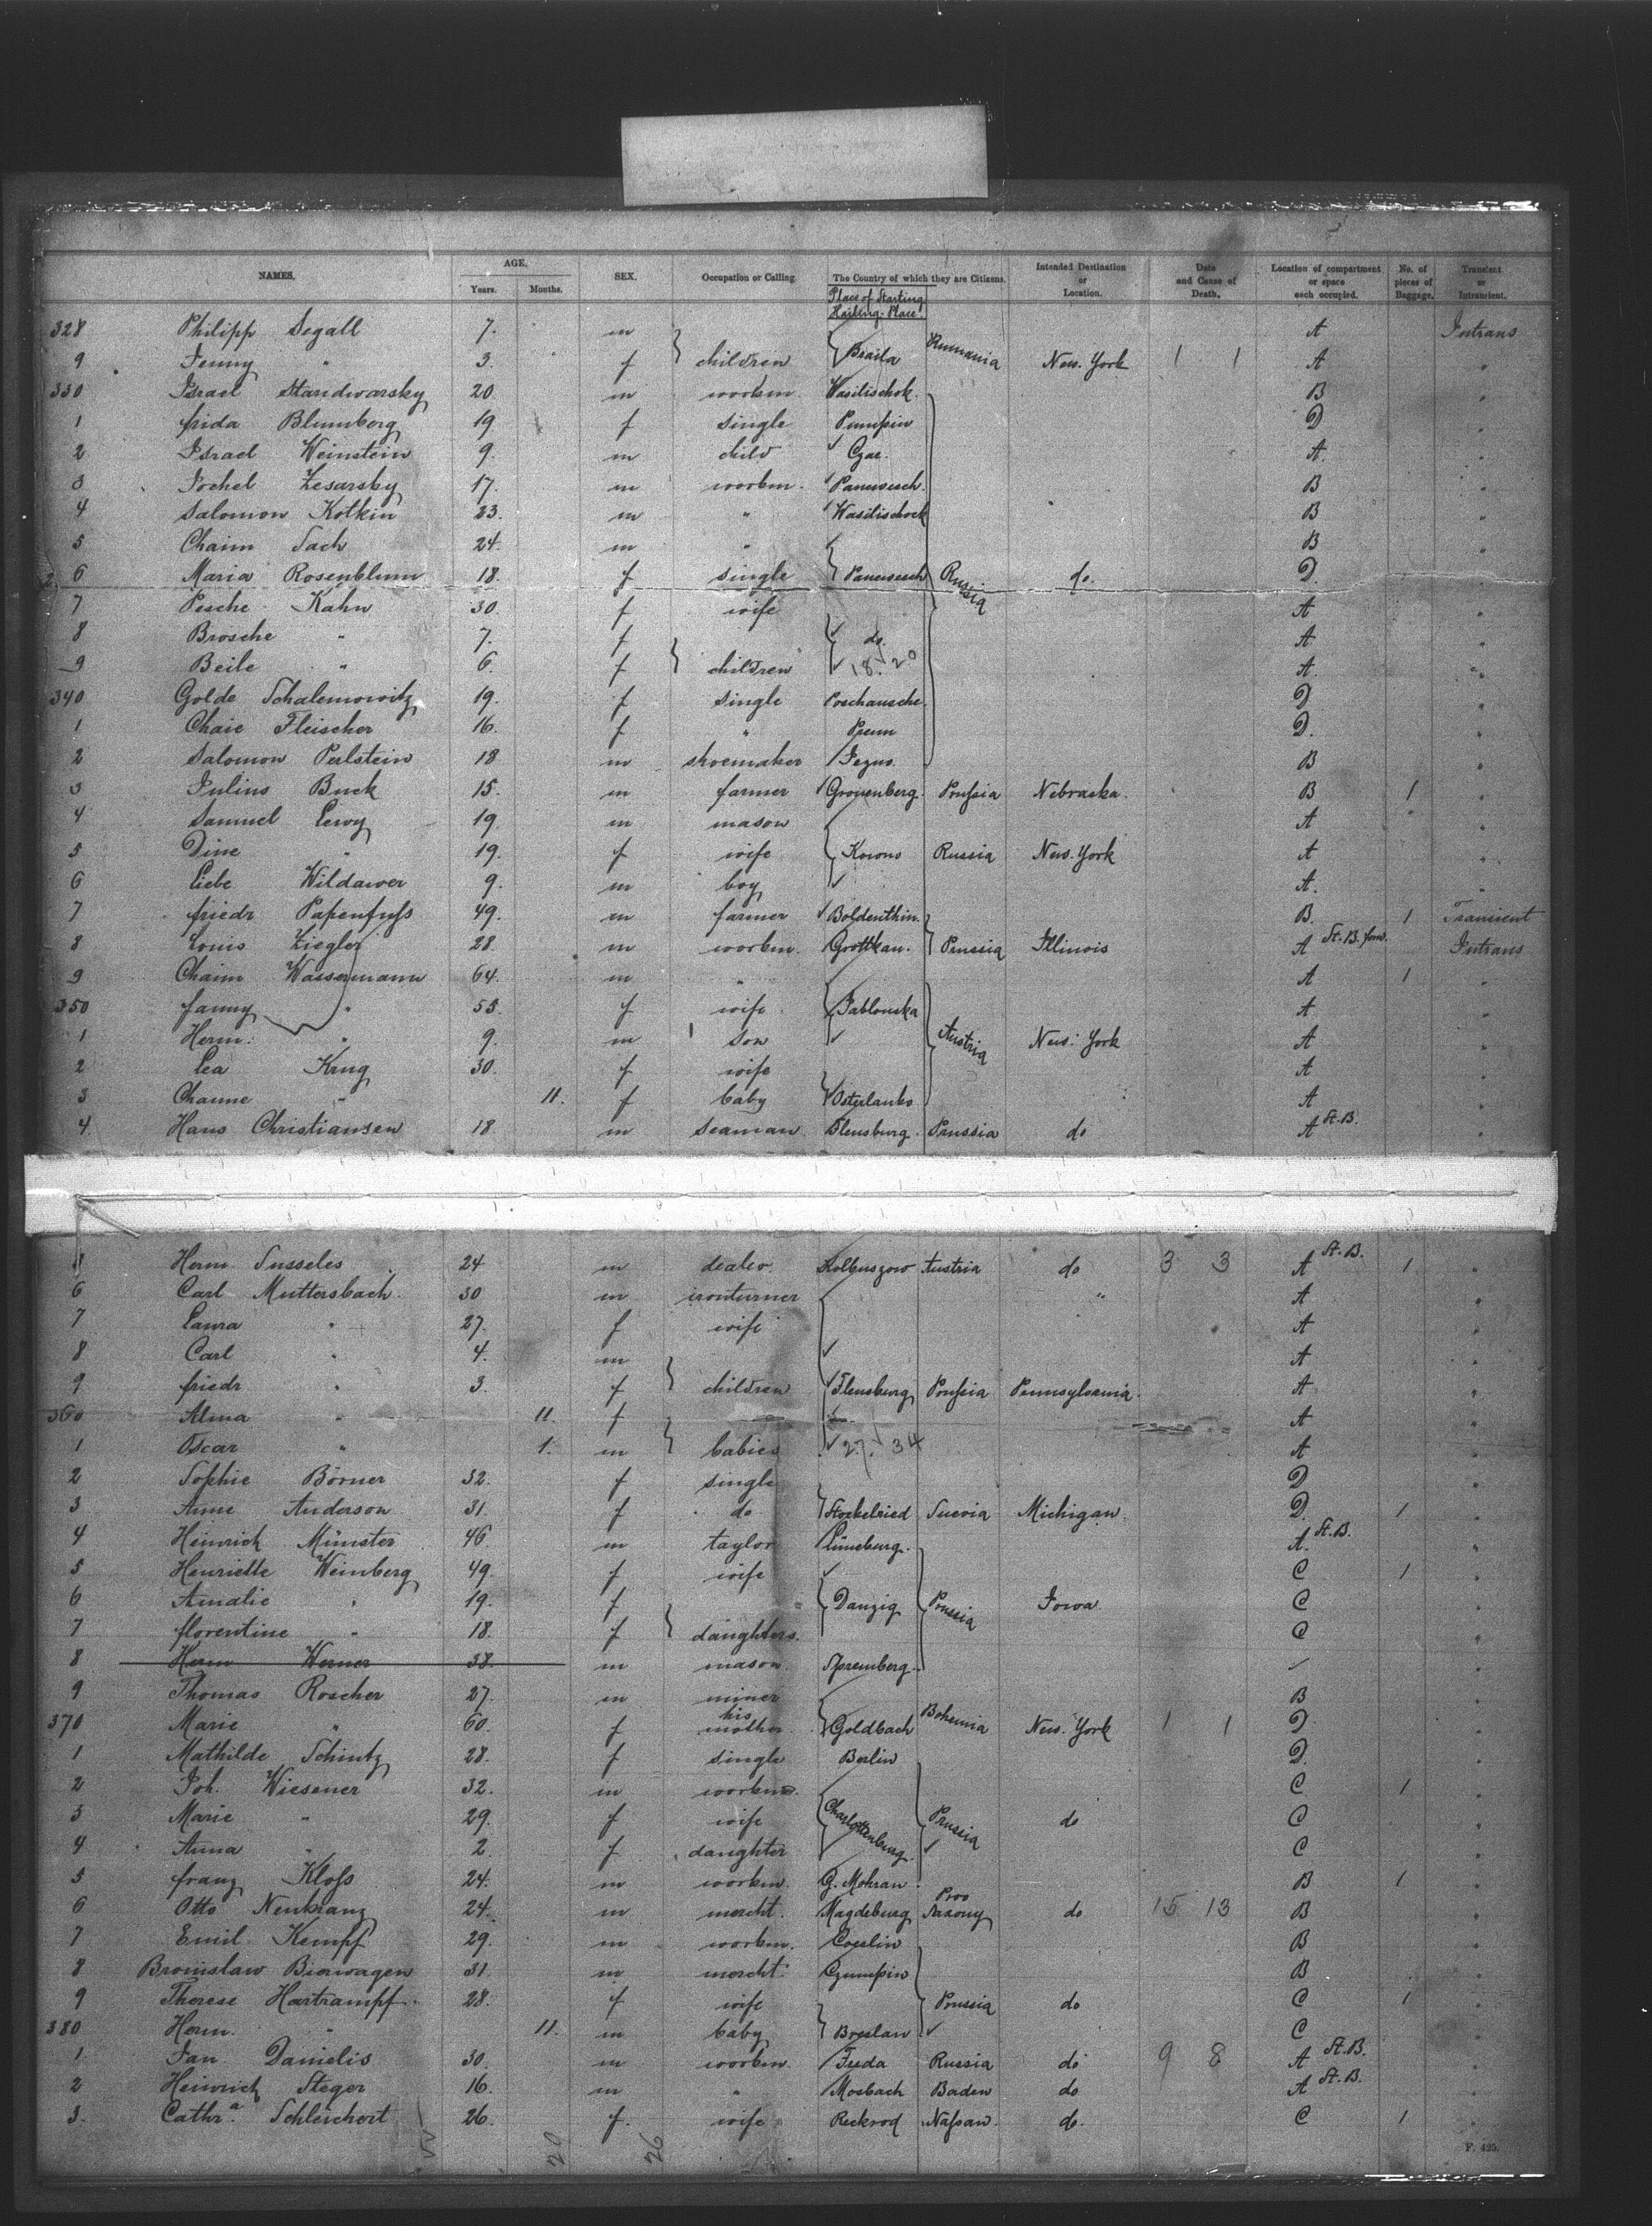 NAMES. AGE. Years. Months. SEX. Occupation or Calling. The Country of which they are Citizens. Intended Destination or Location. Date and Cause of Death. Location of compartment or space each occupied. No. of pieces of Baggage. Transient or Intransient.
Place of Starting
Hailing-Place
328 Philipp Segall 7. m A Intrans
9 Jenny " 3. f children Braila Rumania New-York 1 1 A "
330 Israel Standwarsky 20 m workm. Wasilischok. B "
1 frida Blumberg 19 f single Pumpin D "
2 Israel Weinstein 9. m child Czar. A. "
3 Jochel Lesarsky 17. m workm. Panewesch. B "
4 Salomon Kotkin 23. m " Wasilischock B "
5 Chaim Sach 24. m " B "
6 Maria Rosenblum 18. f single Panewesch Russia do. D "
7 Pesche Kahn 30. f wife A "
8 Brosche " 7. f do. A "
9 Beile " 6. f children 18. 20 A. "
340 Golde Schalemowitz 19. f single Poschausche. D "
1 Chaie Fleischer 16. f " Prenn D. "
2 Salomon Perlstein 18 m shoemaker Jezno. B "
3 Julius Buck 15. m farmer Gronenberg. Prussia Nebraska. B 1 "
4 Samuel Lewy 19. m mason A "
5 Dine " 19. f wife Kowno Russia New-York A "
6 Liebe Wildawer 9. m boy A. "
7 friedr Papenfuss 49. m farmer Boldenthin. B. 1 Transient
8 Louis Ziegler 28. m workm. Grottkau. Prussia Illinois A St.B. fam. Intrans
9 Chaim Wassermann 64. m " A 1 "
350 fanny " 55. f wife Jablonska A "
1 Herm. " 9. m son Austria New-York A "
2 Lea Krug 30. f wife A "
3 Channe " 11. f baby Osterlanko A "
4 Hans Christiansen 18. m seaman Flensburg. Prussia do A St.B. "
Herm Susseles 24 m dealer Kolbuszow Austria do 3 3 A St.B. 1 "
6 Carl Muttersbach 30 m ironturner " A "
7 Laura " 27. f wife A "
8 Carl " 4. m A "
9 friedr " 3. f children Flensburg Prussia Pennsylvania. A "
360 Alma " 11. f A "
1 Oscar " 1. m babies 27. 34 A "
2 Sophie Börner 32. f single D "
3 Anne Anderson 31. f do Stockelried Suevia Michigan. D. 1 "
4 Heinrich Münster 46. m taylor Lüneburg. A. St.B. "
5 Henriette Weinberg 49. f wife C 1 "
6 Amalie " 19. f Danzig Prussia Iowa. C "
7 florentine " 18. f daughters. C "
8 Herm Werner 38. m mason. Spremberg. "
9 Thomas Roscher 27. m miner B "
370 Marie " 60. f his mother Goldbach Bohemia New-York 1 1 D "
1 Mathilde Schintz 28. f single Berlin D. "
2 Joh. Wiesener 32. m workm. C 1 "
3 Marie " 29. f wife Charlottenburg. Prussia do C "
4 Anna " 2. f daughter C "
5 franz Kloss 24. m workm. G. Mohrau. B 1 "
6 Otto Neukranz 24. m mercht. Magdeburg Prov Saxony do 15 13 B "
7 Emil Kempf 29. m workm. Coeslin B "
8 Bronislaw Bierwagen 31. m mercht. Czempin B "
9 Therese Hartrampf. 28. f wife Prussia do C 1 "
380 Herm. " 11. m baby Breslau C "
1 Jan Danielis 30. m workm Freda Russia do 9 8 A St.B. "
2 Heinrich Steger 16. m " Mosbach Baden do A St.B. "
3. Cathra. Schleichert 26. f. wife Reckrod Nassau. do. C 1 "
20 26
F. 425.